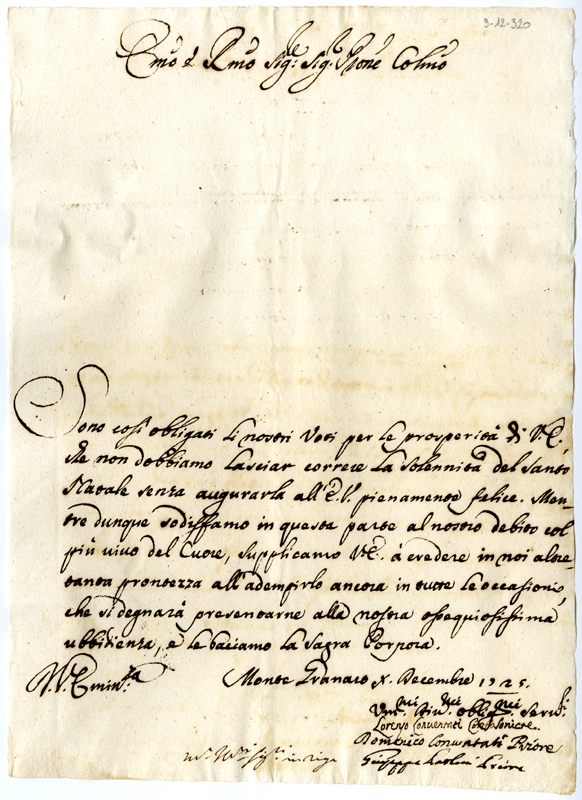 3-12-320
Emo e Rmo Sig.re Sig.re Pñe Colmo
Sono così obligati li nostri Voti per le prosperità di V.E.
che non dobbiamo lasciar correre la solennità del Santo
Natale senza augurarla all'E.V. pienamente felice. Men-
tre dunque sodisfamo in questa parte al nostro debito col
più vivo del Cuore, supplicamo V.E. à credere in noi altre-
tanta prontezza all'adempirlo ancora in tutte le occasioni,
che si degnarà presentarne alla nostra ossequiosissima
ubbidienza, e le baciamo la Sagra Porpora.
V.ra Emin.za
Monte Granaro X. Decembre 1725.
Um.mi Div.mi oblig.mi Serv.ri
Lorenzo Conventati Confaloniere
Domenico Conventati Priore
Giuseppe Priore